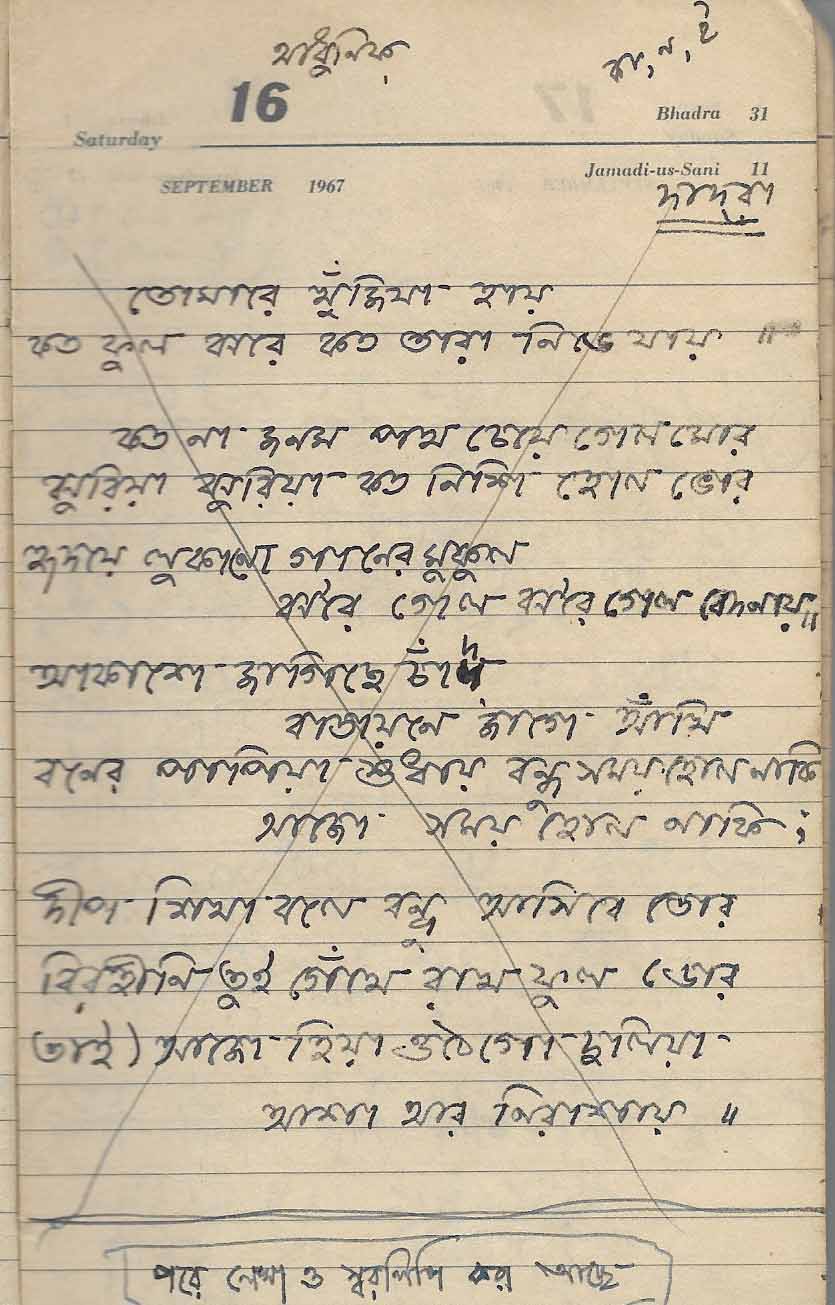 আধুনিক
কা, ন, ই
16
Bhadra 31
Saturday
Jamadi-us-Sani 11
SEPTEMBER 1967
দাদ্‌রা
তোমারে খুঁজিয়া হায়
কত ফুল ঝরে কত তারা নিভে যায় ॥
কত না জনম পথ চেয়ে গেল মোর
ঝুরিয়া ঝুরিয়া কত নিশি হোল ভোর
হৃদয়ে লুকানো গানের মুকুল
ঝ'রে গেল ঝ'রে গেল বেদনায় ॥
আকাশে জাগিছে চাঁদ
বাতায়নে জাগে আঁখি
বনের পাপিয়া শুধায় বন্ধু সময় হোল নাকি
আজো সময় হোল নাকি ;
দীপ শিখা বলে বন্ধু আসিবে তোর
বিরহীনি তুই গেঁথে রাখ ফুল ডোর
তাই) আজো হিয়া ওঠে গো দুলিয়া
আশা আর নিরাশায় ॥
পরে লেখা ও স্বরলিপি করা আছে